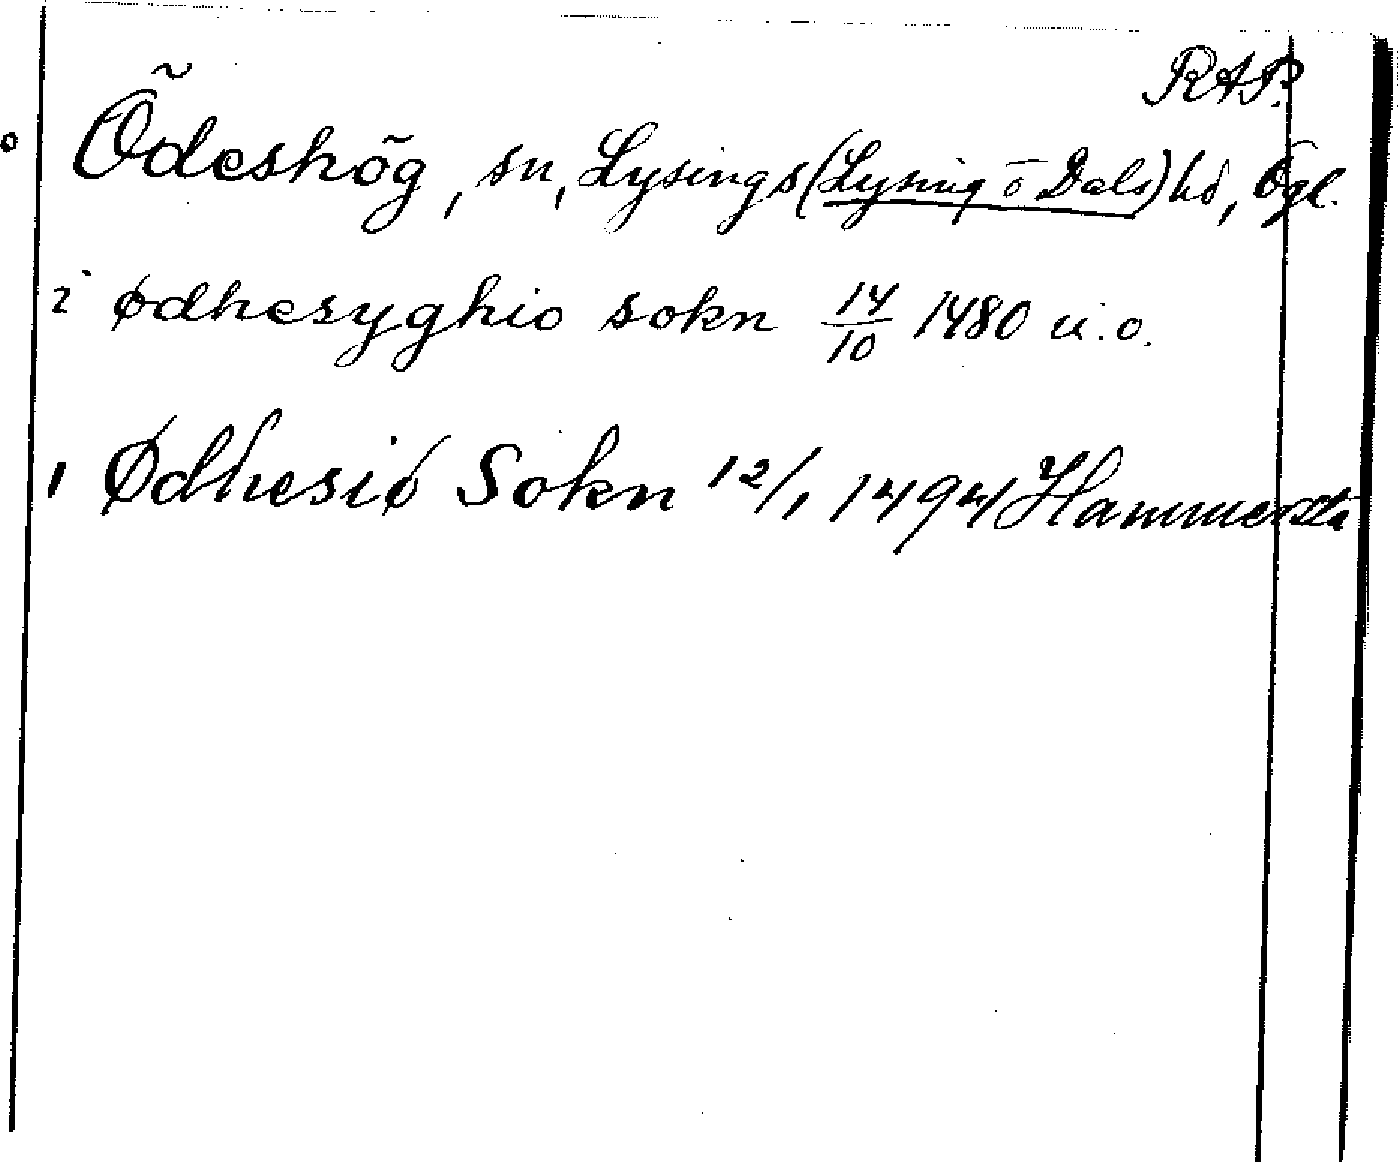 RAP.
Ödeshög, sn, Lysings (Lysing o Dals) hd, Ögl.
i ødhesyghio sokn 14/10 1480 u.o.
i Ødhesiø Sokn 12/1 1494 Hammersta